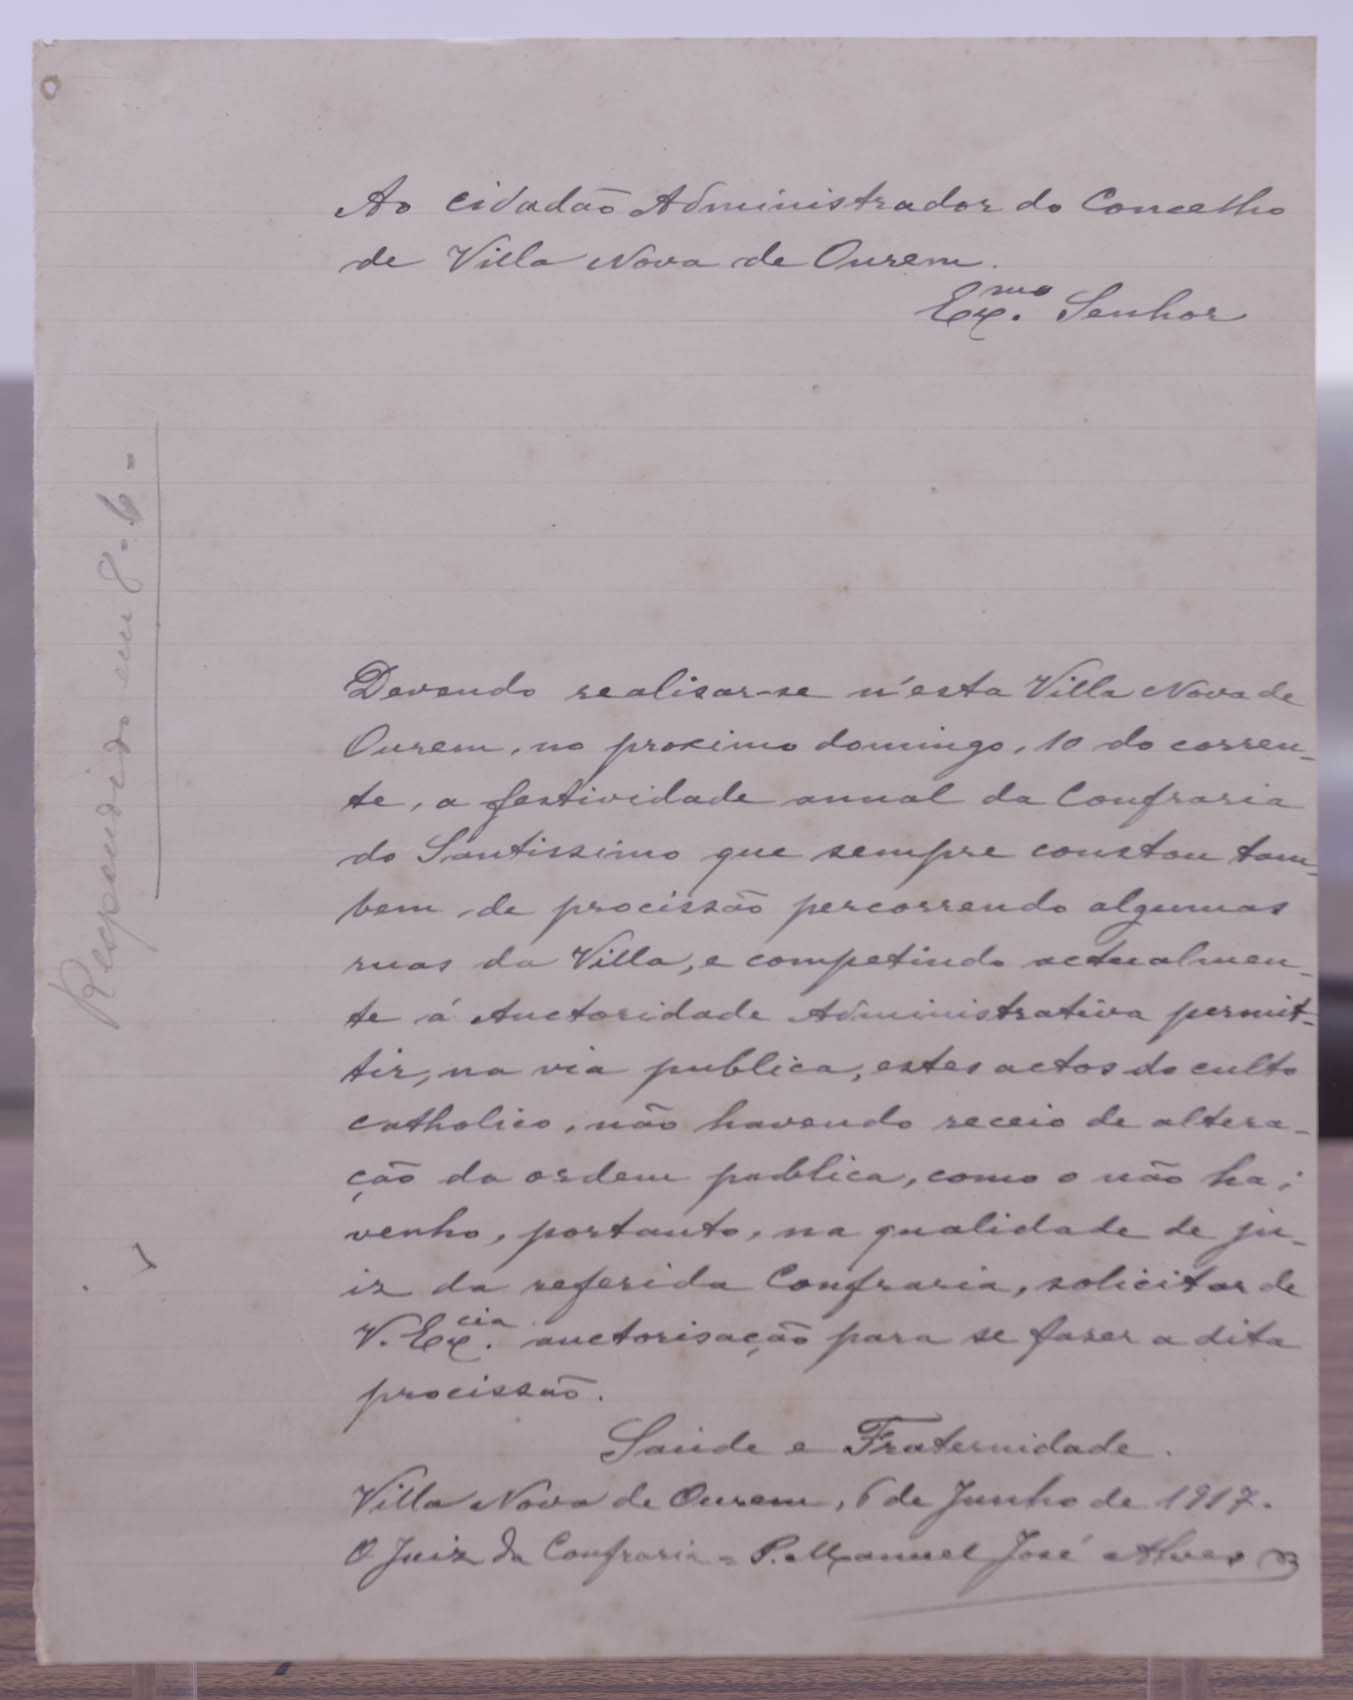 Ao cidadão Administrador do Concelho
de Villa Nova de Ourem.
Ex.mo Senhor
Respondido em 8-6-
Devendo realisar-se n'esta Villa Nova de
Ourem, no proximo domingo, 10 do corren-
te, a festividade annual da Confraria
do Santissimo que sempre constou tam-
bem de procissão percorrendo algumas
ruas da Villa, e competindo actualmen-
te á Auctoridade Administrativa permit-
tir, na via publica, estes actos do culto
catholico, não havendo receio de altera-
ção da ordem publica, como o não ha;
venho, portanto, na qualidade de ju-
iz da referida Confraria, solicitar de
V. Ex.cia auctorisação para se fazer a dita
procissão.
Saúde e Fraternidade.
Villa Nova de Ourem, 6 de Junho de 1917.
O Juiz da Confraria = P. Manuel José Alves